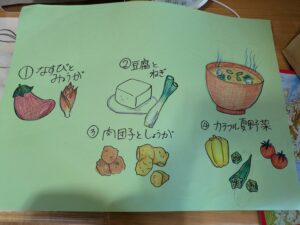 ①なすびと
みょうが
②豆腐と
ねぎ
③肉団子としょうが
④カラフル夏野菜